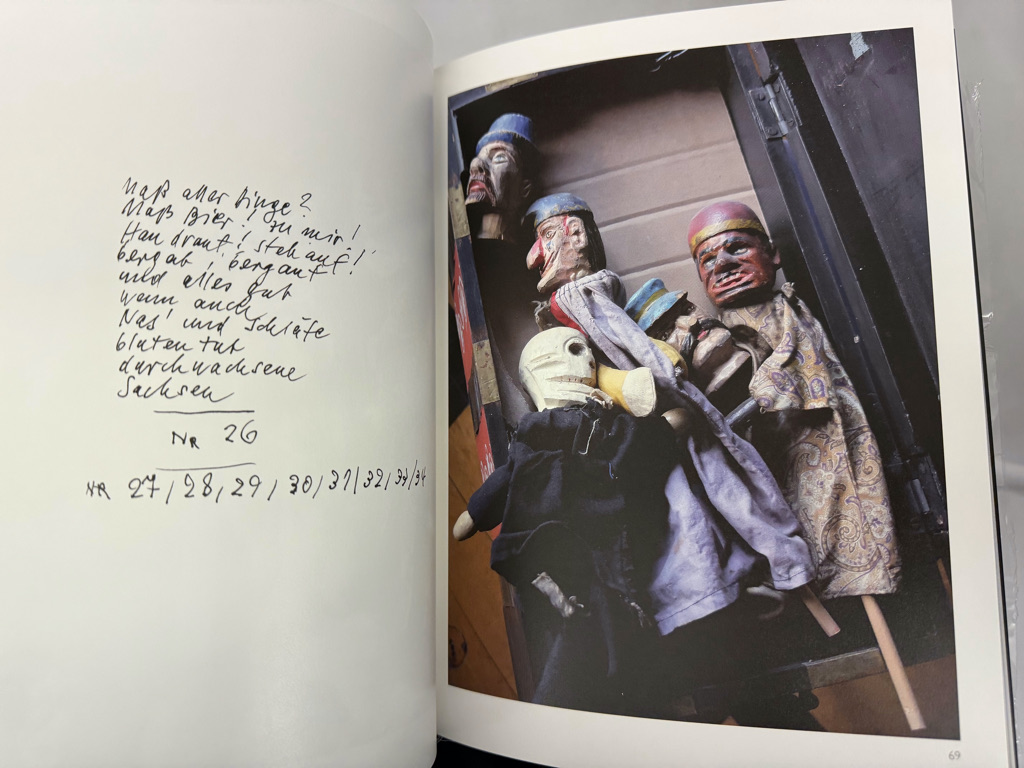 Maß aller Dinge?
Maß Bier, zu mir!
Hau drauf! steh auf!
bergab, bergauf!
und alles gut
wann auch
Nas' und Schläfe
bluten tut
durchwachsene
Sachsen
NR 26
NR 27/28/29/30/31/32/33/34
69